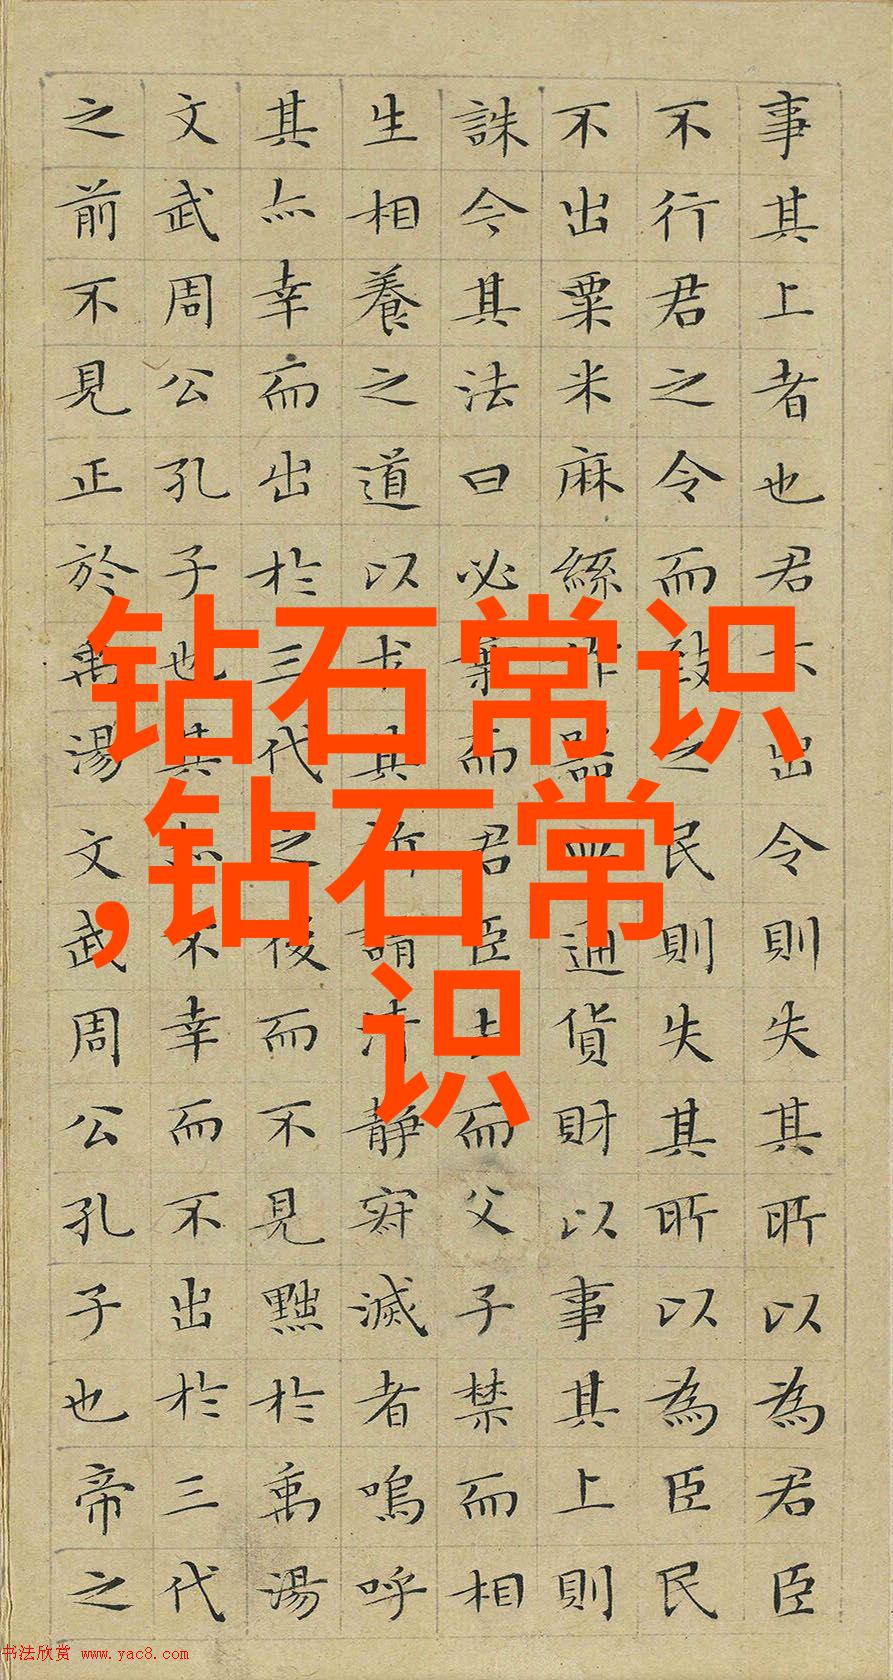 事其上者也君不出令則失其所以為君臣
不行君之令而致之民則失其所以為臣民
不出粟米麻絲作器皿通貨財以事其上則
誅今其法曰必棄而君臣去而父子禁而相
生相養之道以求其所謂清靜寂滅者嗚呼
其亦幸而出於三代之後而不見黜於禹湯
文武周公孔子也其亦不幸而不出於三代
之前不見正於禹湯文武周公孔子也帝之
钻石常识
,钻石常
识
书法欣赏 www.yac8.com